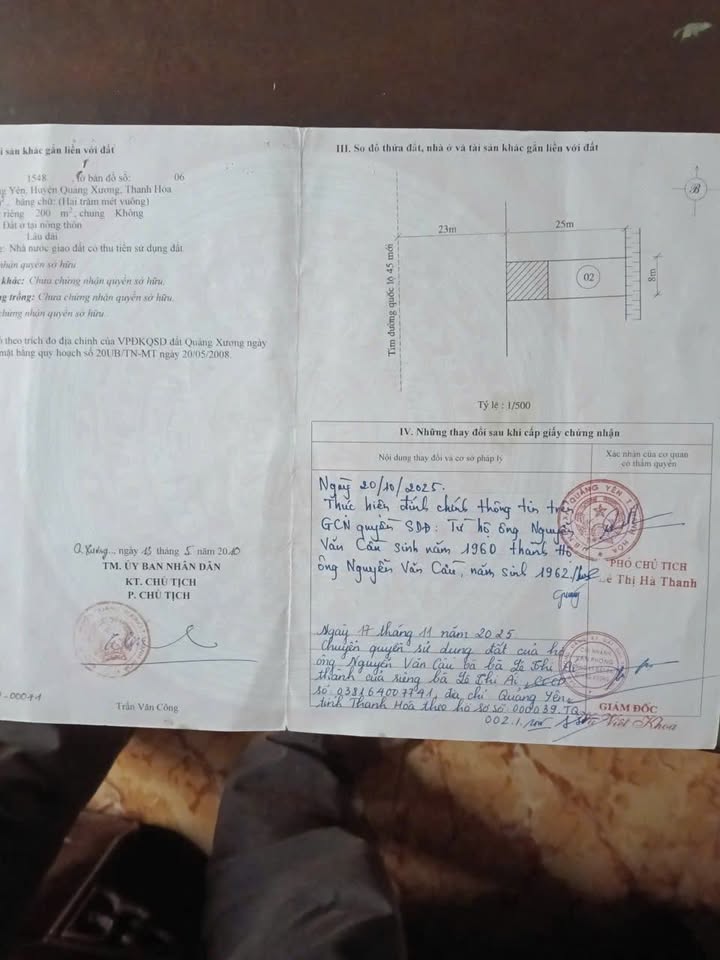 i sản khác gắn liền với đất
1548 , tờ bản đồ số: 06
g Yên, Huyện Quảng Xương, Thanh Hóa
, bằng chữ: (Hai trăm mét vuông)
riêng 200 m², chung Không
Đất ở tại nông thôn
Lâu dài
g: Nhà nước giao đất có thu tiền sử dụng đất
nhận quyền sở hữu
khác: Chưa chứng nhận quyền sở hữu.
ng trồng: Chưa chứng nhận quyền sở hữu.
chứng nhận quyền sở hữu.
theo trích đo địa chính của VPĐKQSD đất Quảng Xương ngày
mặt bằng quy hoạch số 20UB/TN-MT ngày 20/05/2008.
Q.Xương, ngày 13 tháng 5 năm 2010
TM. ỦY BAN NHÂN DÂN
KT. CHỦ TỊCH
P. CHỦ TỊCH
Trần Văn Công
III. Sơ đồ thửa đất, nhà ở và tài sản khác gắn liền với đất
B
23m
25m
Tim đường quốc lộ 45 mới
02
8m
Tỷ lệ : 1/500
IV. Những thay đổi sau khi cấp giấy chứng nhận
Nội dung thay đổi và cơ sở pháp lý
Xác nhận của cơ quan
có thẩm quyền
Ngày 20/10/2025.
Thực hiện đính chính thông tin trên
GCN quyền SDĐ: Từ hộ ông Nguyễn
Văn Cầu sinh năm 1960 thành Hộ
ông Nguyễn Văn Cầu, năm sinh 1962
PHÓ CHỦ TỊCH
Lê Thị Hà Thanh
Ngày 17 tháng 11 năm 2025
Chuyển quyền sử dụng đất của hộ
ông Nguyễn Văn Cậu bà bà Lê Thị Ái
thành của riêng bà Lê Thị Ái, CCCD
số 038164007741, địa chỉ Quảng Yên,
tỉnh Thanh Hóa theo hồ sơ số: 000039.TA
002.1.
GIÁM ĐỐC
Việt Khoa